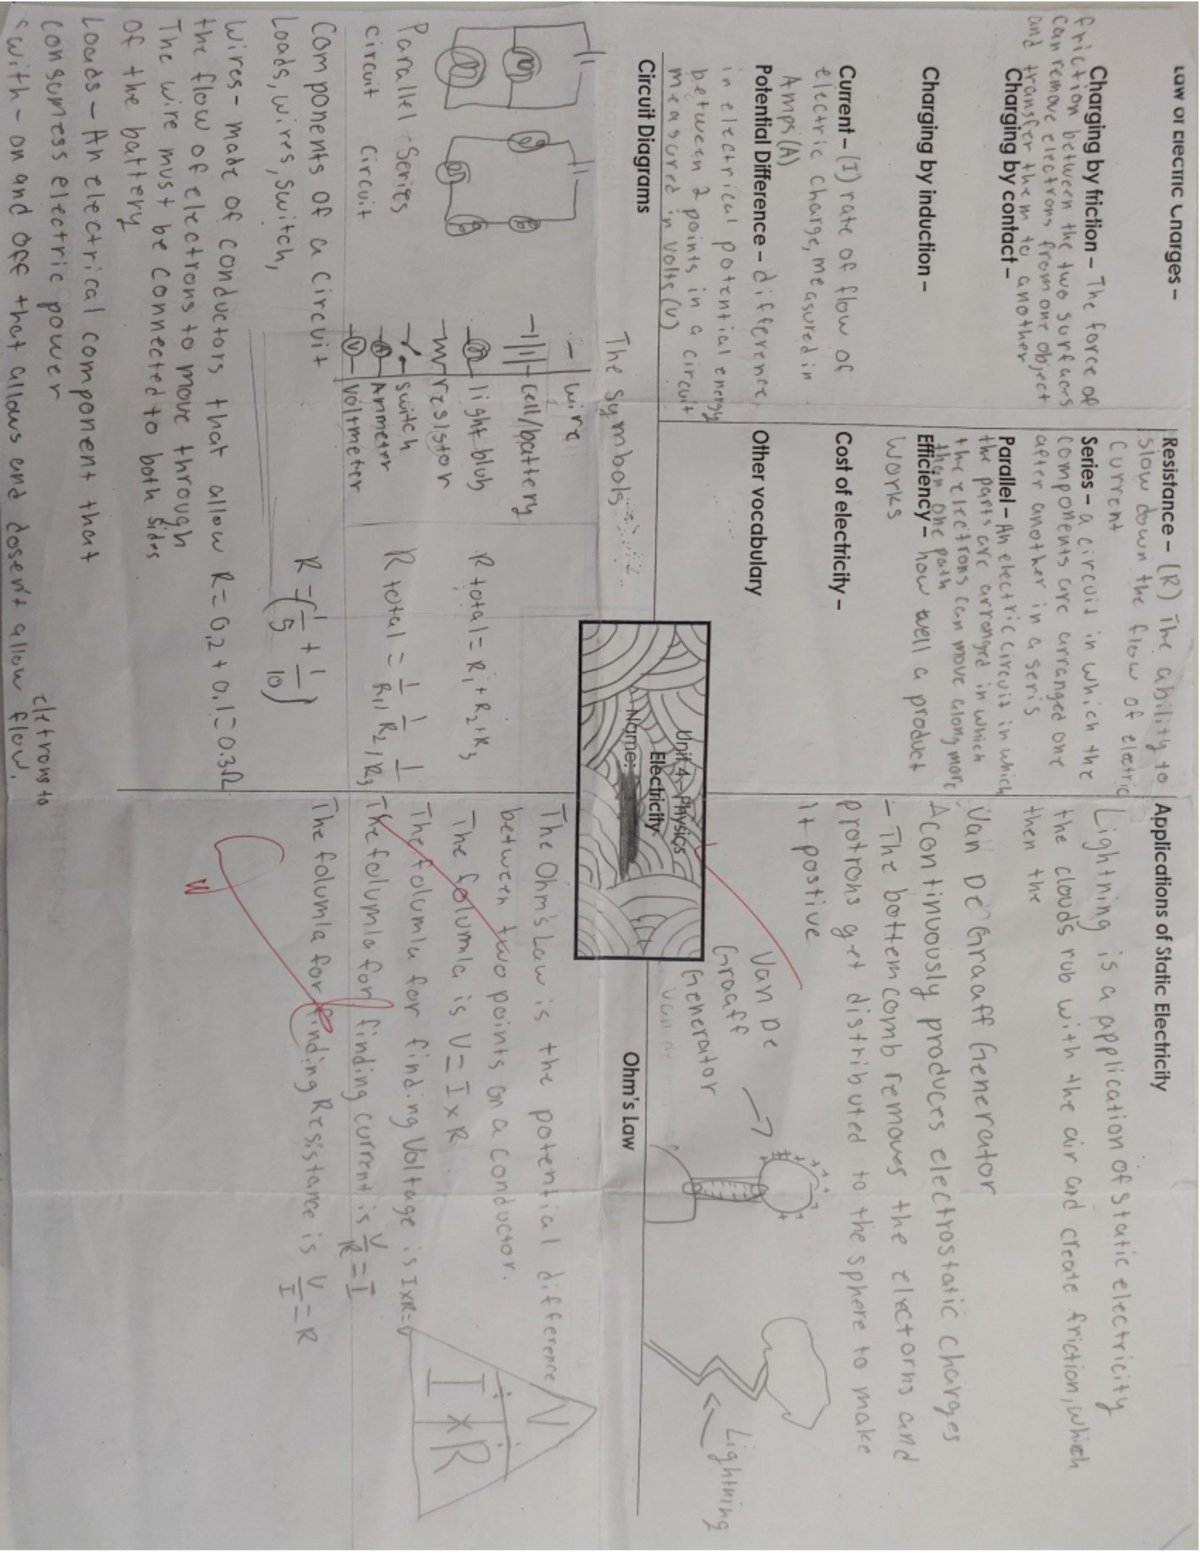 Law of Electric Charges –
Charging by friction – The force of
friction between the two surfaces
can remove electrons from one object
and transfer them to another
Charging by contact –
Charging by induction –
Current – (I) rate of flow of
electric charge, measured in
Amps (A)
Potential Difference – difference
in electrical potential energy
between 2 points in a circuit
measured in volts (V)
Resistance – (R) The ability to
slow down the flow of electric
current
Series – a circuid in which the
components are arranged one
after another in a seris
Parallel – An electric circuit in which
the parts are arranged in which
the electrons can move along more
than one path
Efficiency – how well a product
works
Cost of electricity –
Other vocabulary
Applications of Static Electricity
Lightning is a application of static electricity
the clouds rub with the air and create friction, which
then the
Van De Graaff Generator
A continuously produces electrostatic charges
- The bottem comb removes the electorns and
protrons get distributed to the sphere to make
it postive
Van De
Graaff
Generator
Lightning
Unit 4 – Physics
Electricity
Name:
Circuit Diagrams
Parallel Series
circuit circuit
Components of a circuit
Loads, wires, switch,
Wires - made of conductors that allow
the flow of electrons to move through
The wire must be connected to both sides
of the battery
Loads - An electrical component that
consumess electric power
swith - on and off that allows and dosen't allow
eletrons to
flow.
The symbols
wire
cell/battery
light blub
resistor
switch
A Ammeter
V voltmeter
R total = R1 + R2 + R3
R total = 1/R1, 1/R2, 1/R3
R = (1/5 + 1/10)
R = 0.2 + 0.1 = 0.3Ω
Ohm's Law
The Ohm's Law is the potential difference
between two points on a conductor.
- The folumla is V = I x R
The folumla for finding Voltage is I x R = V
The folumla for finding current is V/R = I
The folumla for finding Resistance is V/I = R
V
I x R